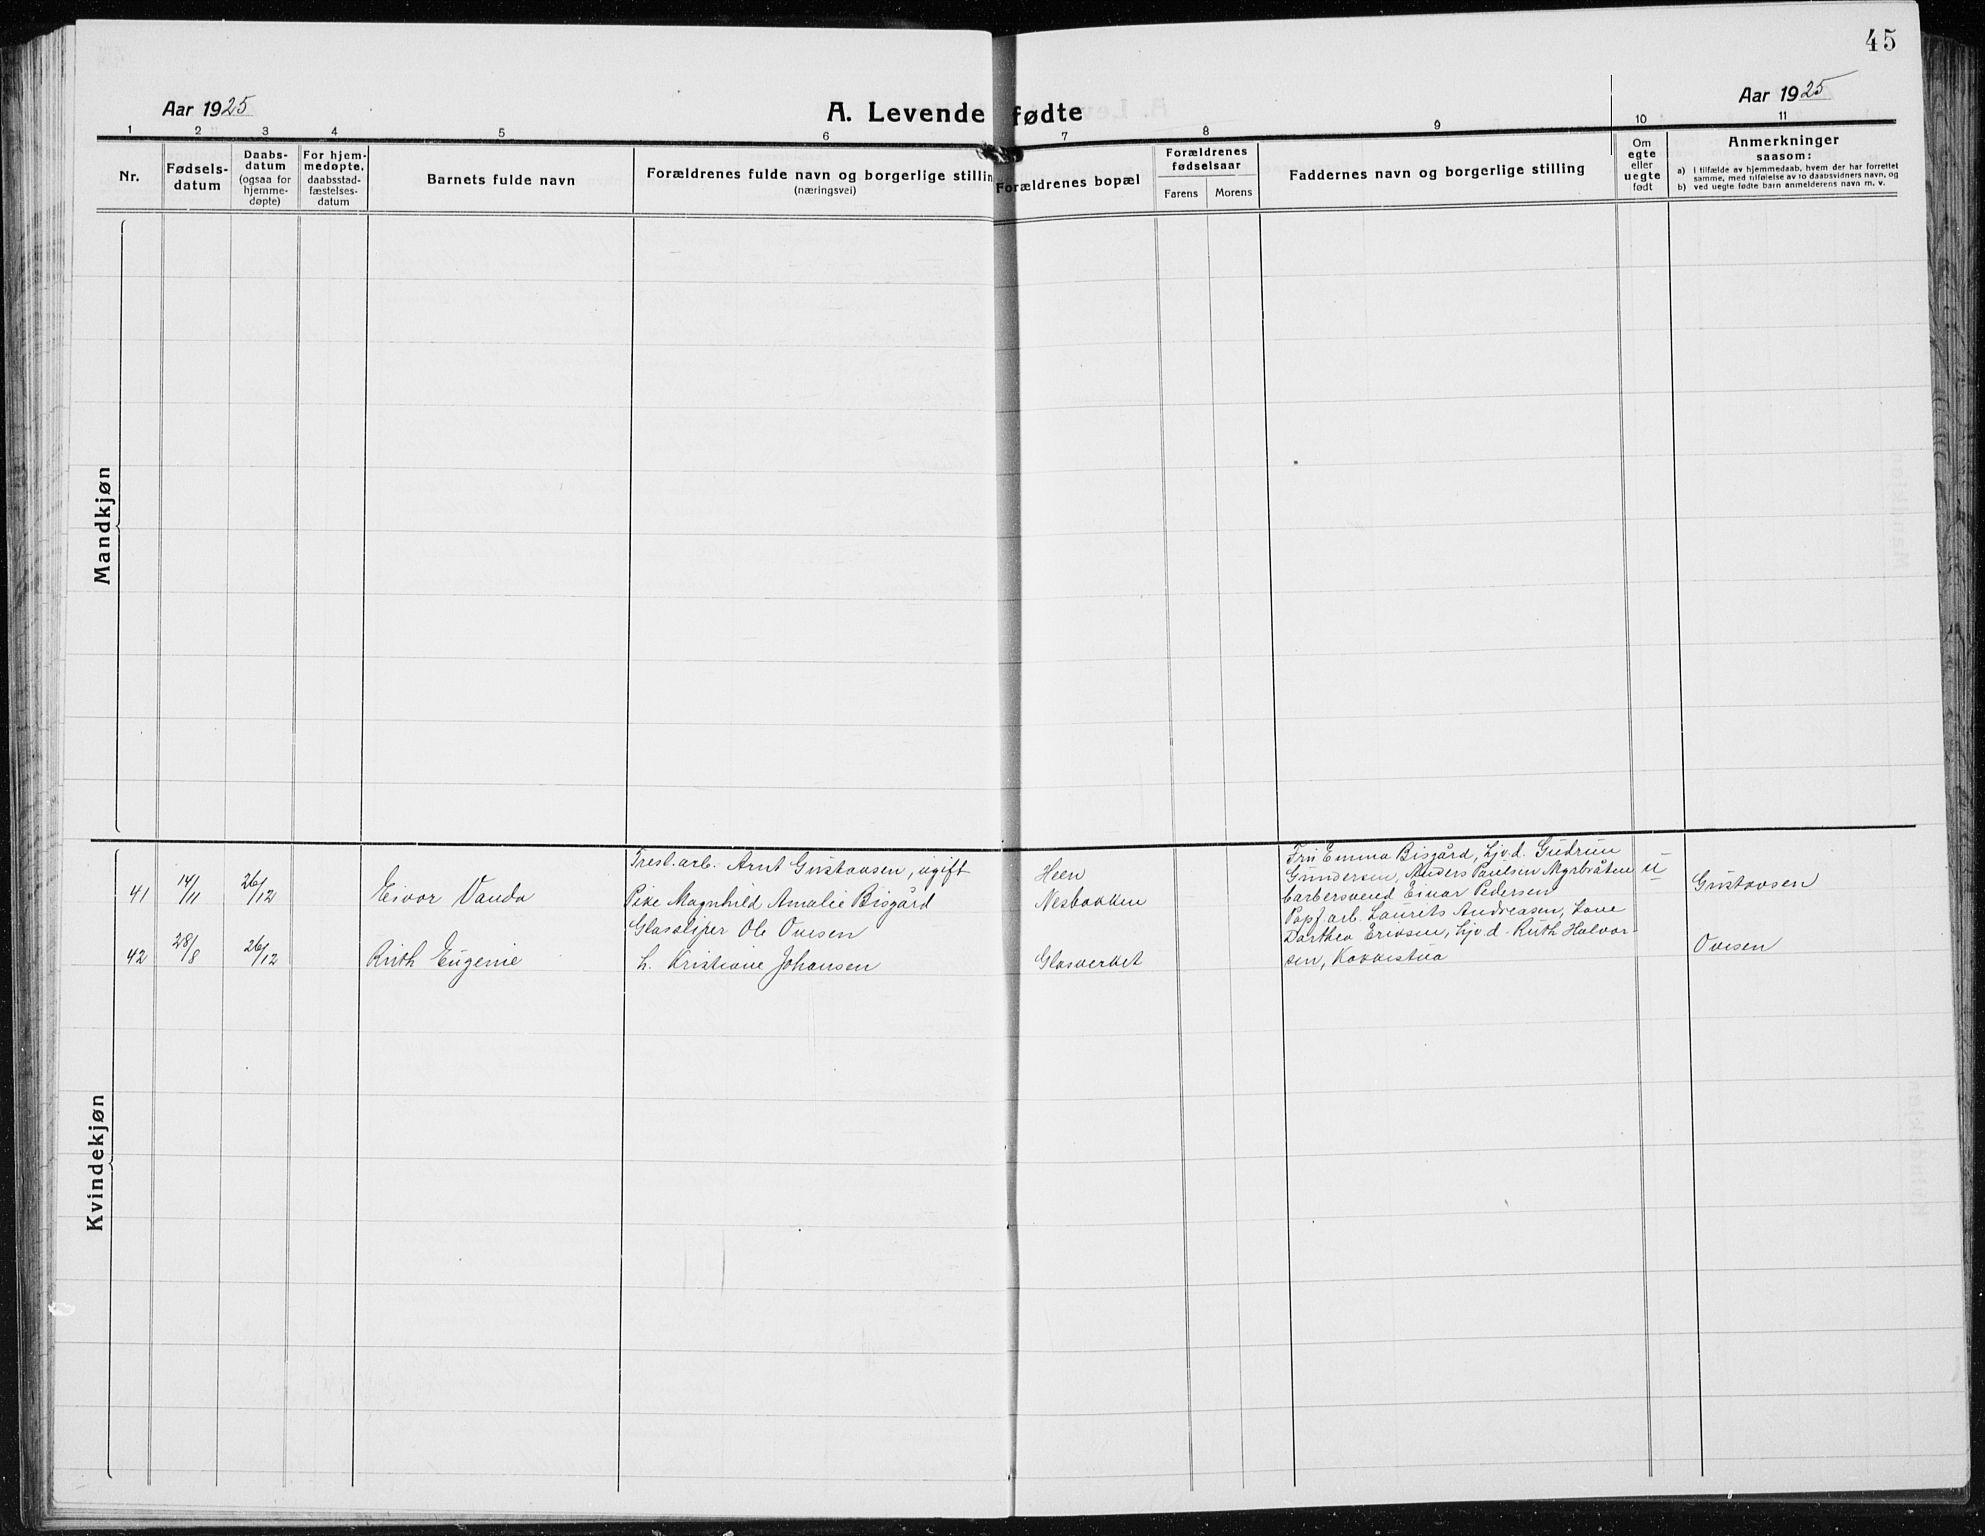 45
Aar 1925
A. Levende fødte
Aar 1925
1 2 3 4 5 6 7 8 9 10 11
Nr.
Fødsels-
datum
Daabs-
datum
(ogsaa for
hjemme-
døpte)
For hjem-
medøpte.
daabsstad-
fæstelses-
datum
Barnets fulde navn
Forældrenes fulde navn og borgerlige stillin
(næringsvei)
Forældrenes bopæl
Forældrenes
fødselsaar
Farens Morens
Faddernes navn og borgerlige stilling
Om
egte
eller
uegte
født
Anmerkninger
saasom:
a) I tilfælde av hjemmedaab, hvem der har forrettet
samme, med tilføielse av to daabsvidners navn, og
b) ved uegte fødte barn anmelderens navn m. v.
Mandkjøn
Kvindekjøn
41 14/11 26/12 Eivor Vanda
Tresl.arb. Arnt Gustavsen, ugift
Pike Magnhild Amalie Bisgård
Heen
Nesbakken
Fru Emma Bisgård, hjv.d. Gudrun
Gundersen, Anders Paulsen Myrbråten
barbersvend Einar Pedersen
u
Gustavsen
42 28/8 26/12 Ruth Eugenie
Glassliper Ole Ovesen
h. Kristiane Johansen
Glasverket
Papf.arb. Laurets Andreasen, kone
Dorthea Eriksen, hjv.d. Ruth Halvor-
sen, Kokkestua
Ovesen